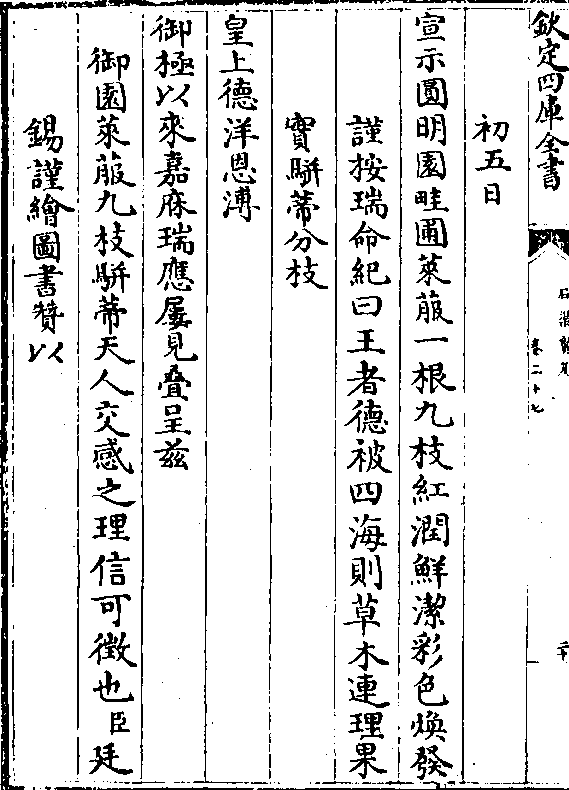 欽定四庫全書
卷二十七
初五日
宣示圓明園畦圃萊菔一根九枝紅潤鮮潔彩色煥發
謹按瑞命紀曰王者德被四海則草木連理果
實駢蒂分枝
皇上德洋恩溥
御極以來嘉庥瑞應屢見疊呈兹
御園萊菔九枝駢蒂天人交感之理信可徵也臣廷
錫謹繪圖書贊以